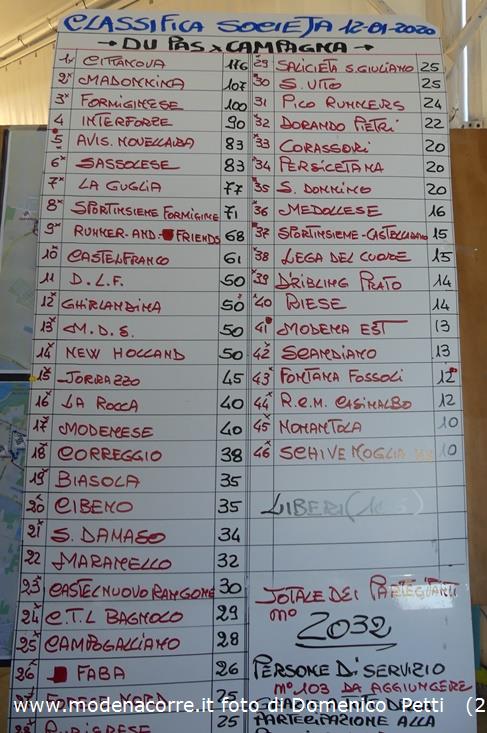 CLASSIFICA SOCIETA' 12-01-2020
→ DU PAS x CAMPAGNA →
1 CITTANOVA 116
2 MADONNINA 107
3 FORMIGINESE 100
4 INTERFORZE 90
5 AVIS. NOVELLARA 83
6 SASSOLESE 83
7 LA GUGLIA 77
8 SPORTINSIEME FORMIGINE 71
9 RUNNER-AND-FRIENDS 68
10 CASTELFRANCO 61
11 D.L.F. 50
12 GHIRLANDINA 50
13 M.D.S. 50
14 NEW HOLLAND 50
15 JORRAZZO 45
16 LA ROCCA 40
17 MODENESE 40
18 CORREGGIO 38
19 BIASOLA 35
20 CIBENO 35
21 S. DAMASO 34
22 MARANELLO 32
23 CASTELNUOVO RANGONE 30
24 C.T.L BAGNOLO 29
25 CAMPOGALLIANO 28
26 FABA 26
27 FORUM NORD 25
28 RUBIERESE 25
29 SALICIETA S.GIULIANO 25
30 S. VITO 25
31 PICO RUNNERS 24
32 DORANDO PIETRI 22
33 CORASSORI 20
34 PERSICETANA 20
35 S. DONNINO 20
36 MEDOLLESE 16
37 SPORTINSIEME-CASTELLARANO 15
38 LEGA DEL CUORE 15
39 DRIBLING PRATO 14
40 RIESE 14
41 MODENA EST 13
42 SCANDIANO 13
43 FONTANA FOSSOLI 12
44 R.C.M. CASINALBO 12
45 NONANTOLA 10
46 SCHIVENOGLIA 10
LIBERI
TOTALE DEI PARTECIPANTI
N° 2032
PERSONE DI SERVIZIO
N° 103 DA AGGIUNGERE
PARTECIPAZIONE ALLA
www.modenacorre.it foto di Domenico Petti (2